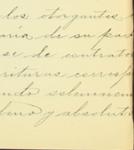 los otorgantes
aria de su pa
se de contrato
rituras corresp
ndo solemnem
leno y absolut